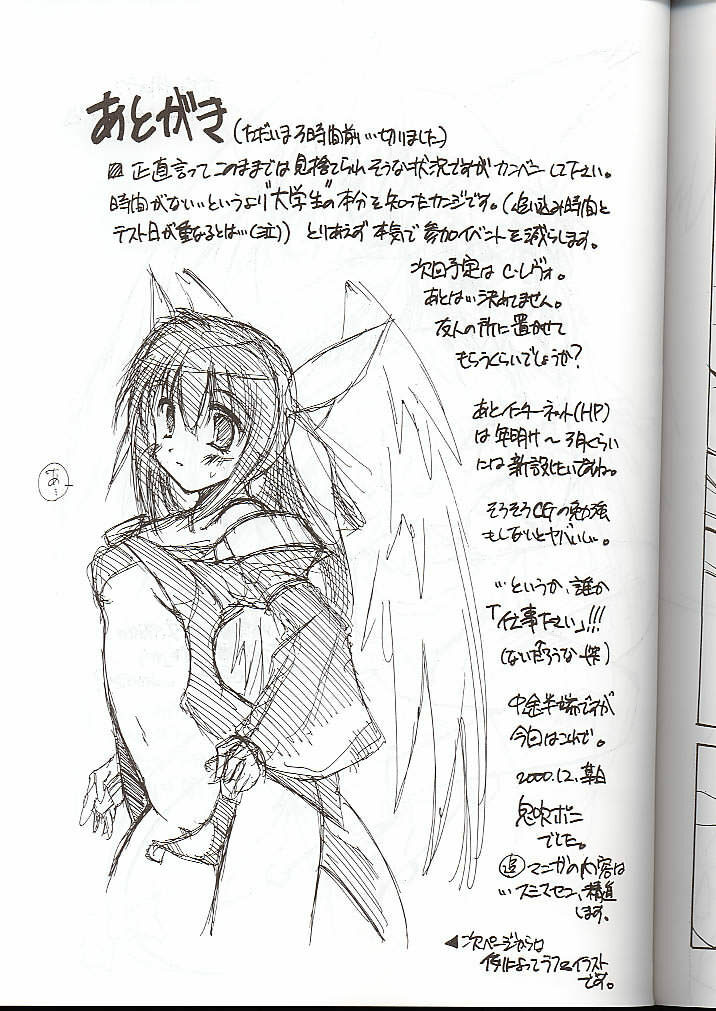 あとがき(ただいま3時間前…切りました)
正直言ってこのままでは見捨てられそうな状況ですがカンベンして下さい。
時間がない…というより"大学生"の本分を知ったカンジです。(追い込み時間と
テスト日が重なるとは…(泣)) とりあえず本気で参加イベントを減らします。
次回予定はC・レヴォ。
あとは…決めてません。
友人の所に置かせて
もらうくらいでしょうか?
あとインターネット(HP)
は年明け〜3月くらい
には新設したいですね。
そろそろCGの勉強
もしないとヤバいし。
…というか、誰か
「仕事下さい」!!!
(ないだろうな
中途半端ですが
今回はこれで。
2000.12.某日
でした。
追 マンガの内容は
…スミマセン、精進
します。
◀次ページからは
例によってラフイラスト
です。
あ…